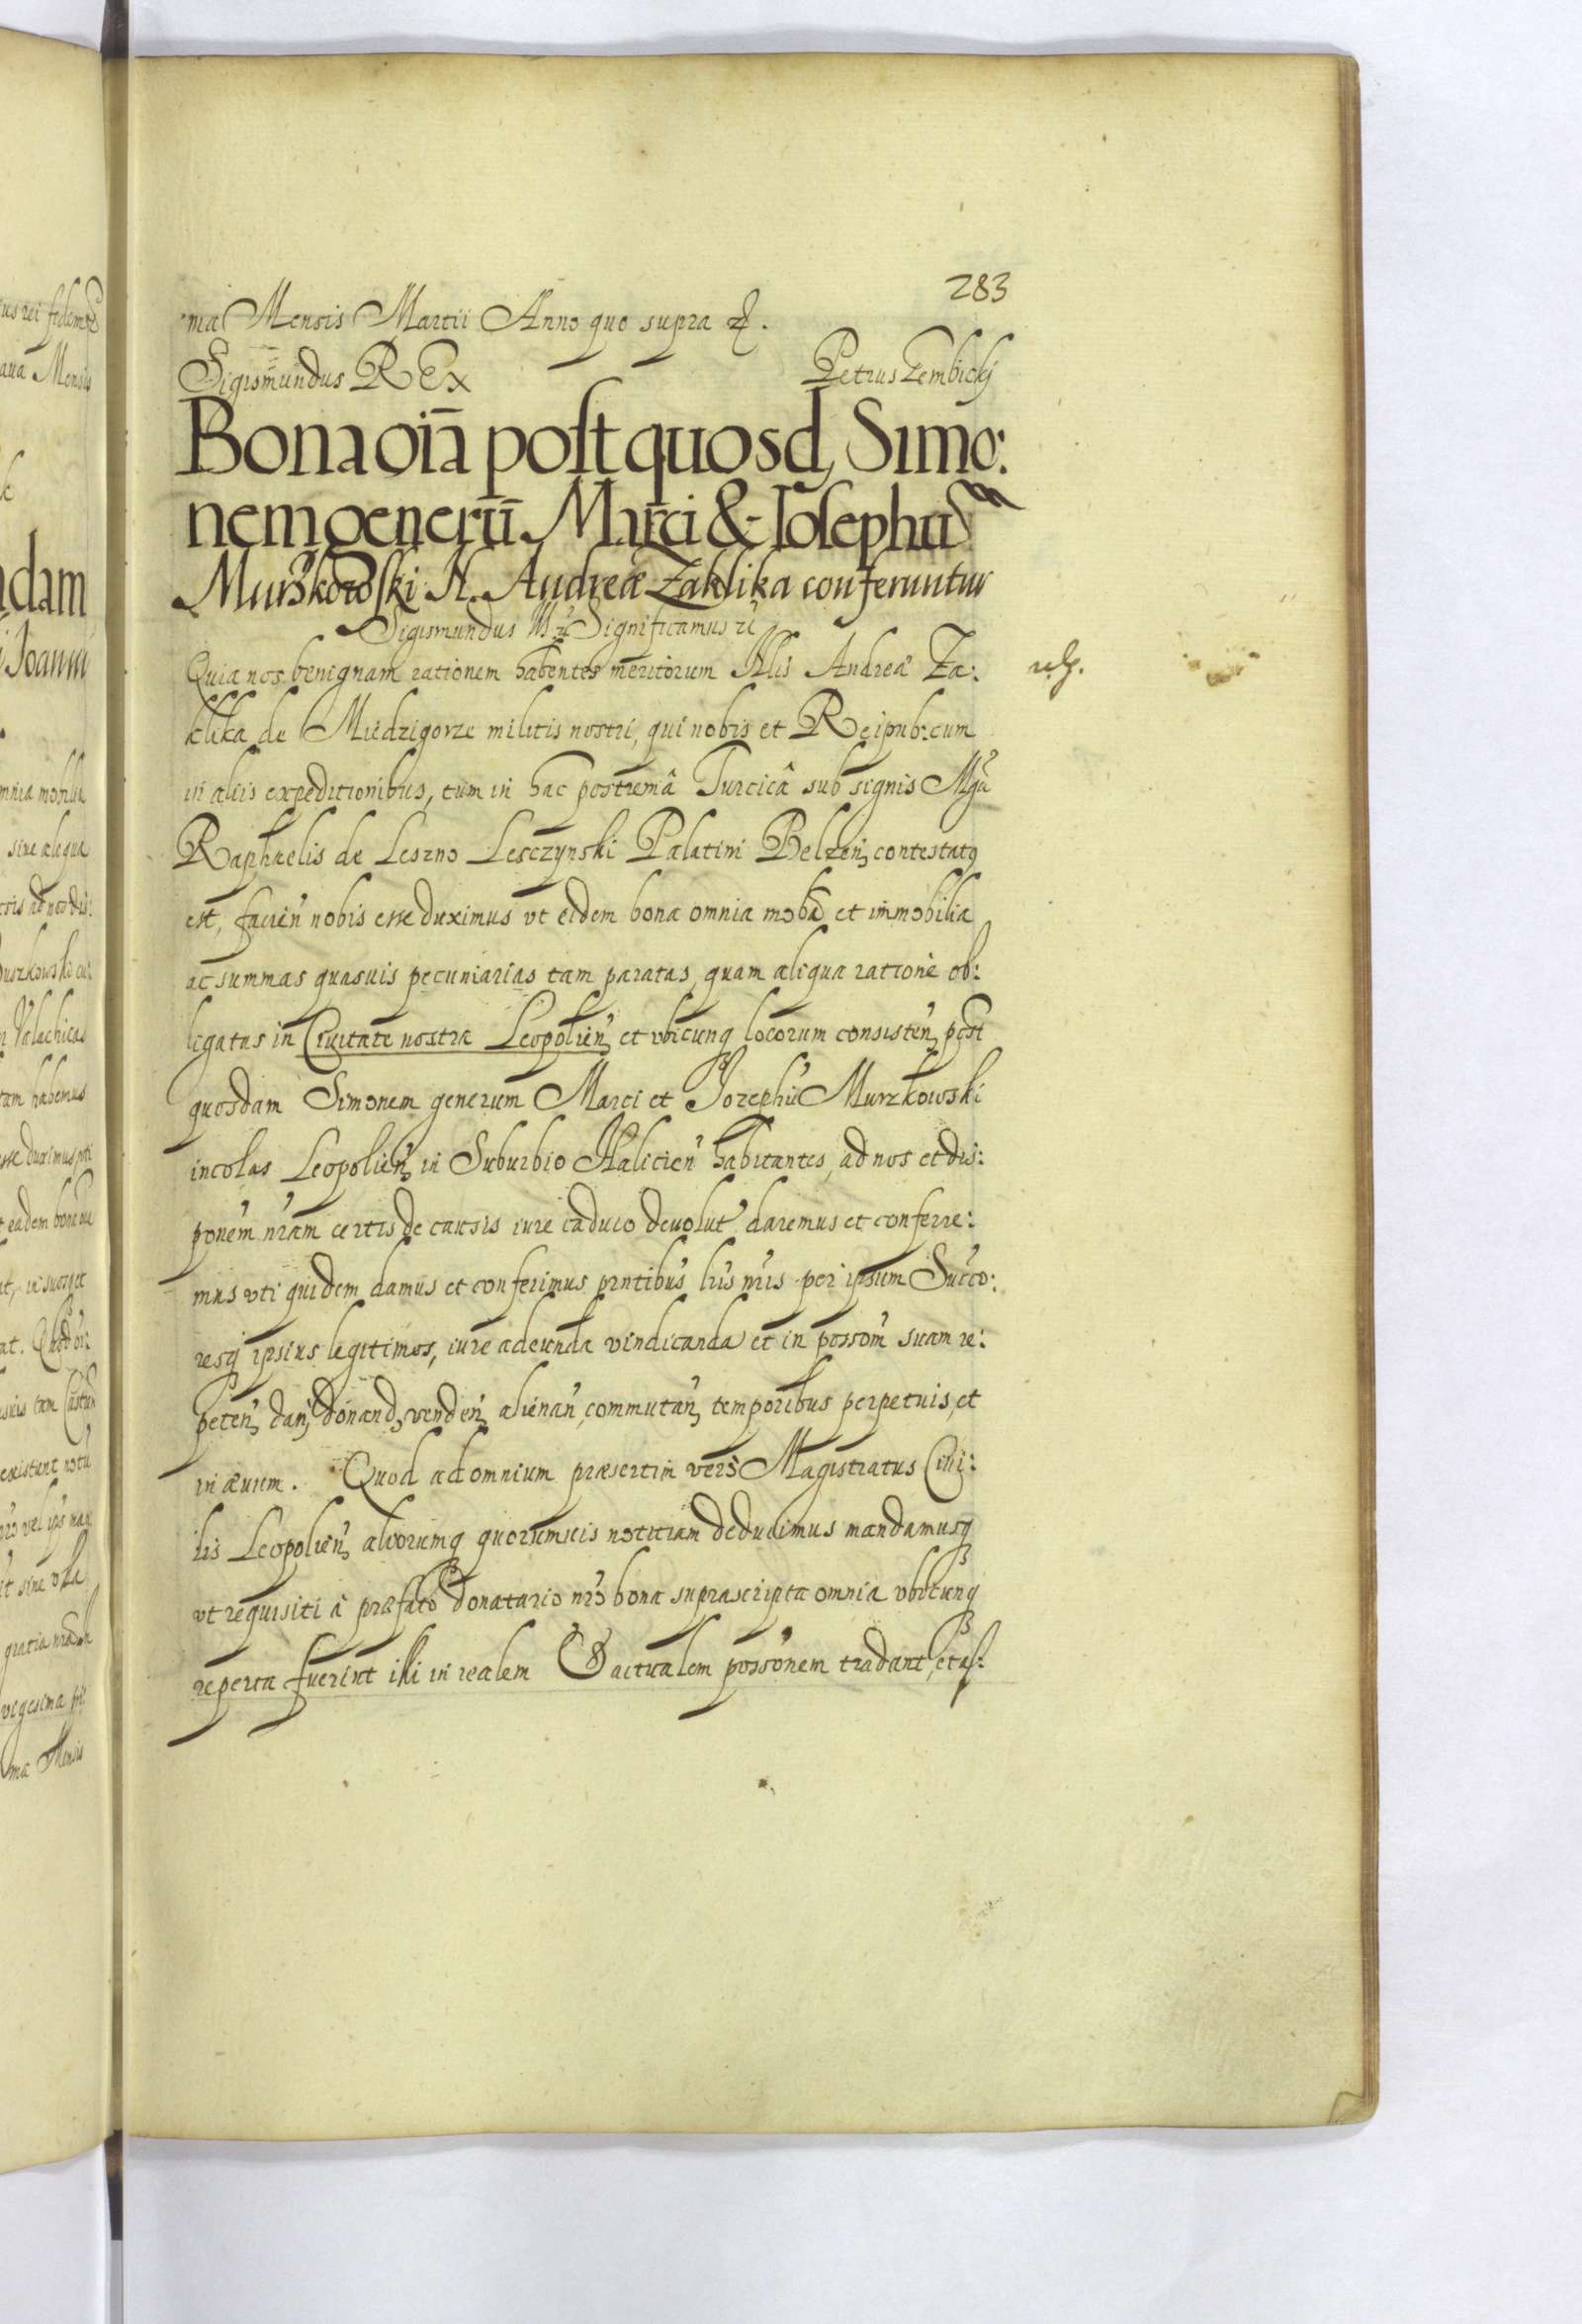 283
ma Mensis Martii Anno quo supra etc.
Sigismundus REx Petrus Gembicky
Bona oīa post quosd, Simo:
nem generū Marci & Iosephū
Murzkowski N. Andreæ Zaklika conferuntur
Sigismundus III etc. Significamus etc.
Quia nos benignam rationem habentes meritorum Nlis Andreæ Za:
klika de Miedzigorze militis nostri, qui nobis et Reipub: cum
in aliis expeditionibus, tum in hac postremâ Turcicâ sub signis Mgci
Raphaelis de Leszno Lesczynski Palatini Belzen, contestatq
est, facien nobis esse duximus vt eidem bona omnia mobā et immobilia
ac summas quasuis pecuniarias tam paratas, quam aliqua ratione ob:
ligatas in Ciuitate nostra Leopolien, et vbicunq locorum consisten, post
quosdam Simonem generum Marci et Jozephū Murzkowski
incolas Leopolien, in Suburbio Halicien habitantes, ad nos et dis:
ponem nram certis de causis iure caduco deuolut daremus et conferre:
mus vti quidem damus et conferimus pntibus lris nris per ipsum Succo:
resq ipsius legitimos, iure adeunda vindicanda et in possom suam re:
peten, dan, donand, venden, alienan, commutan, temporibus perpetuis, et
in æuum. Quod ad omnium præsertim vero Magistratus Ciui:
lis Leopolien, aliorumq quorumuis notitiam deducimus mandamusq
vt requisiti à præfato donatario nro bona suprascripta omnia vbicunq
reperta fuerint illi in realem & actualem possonem tradant, et as: